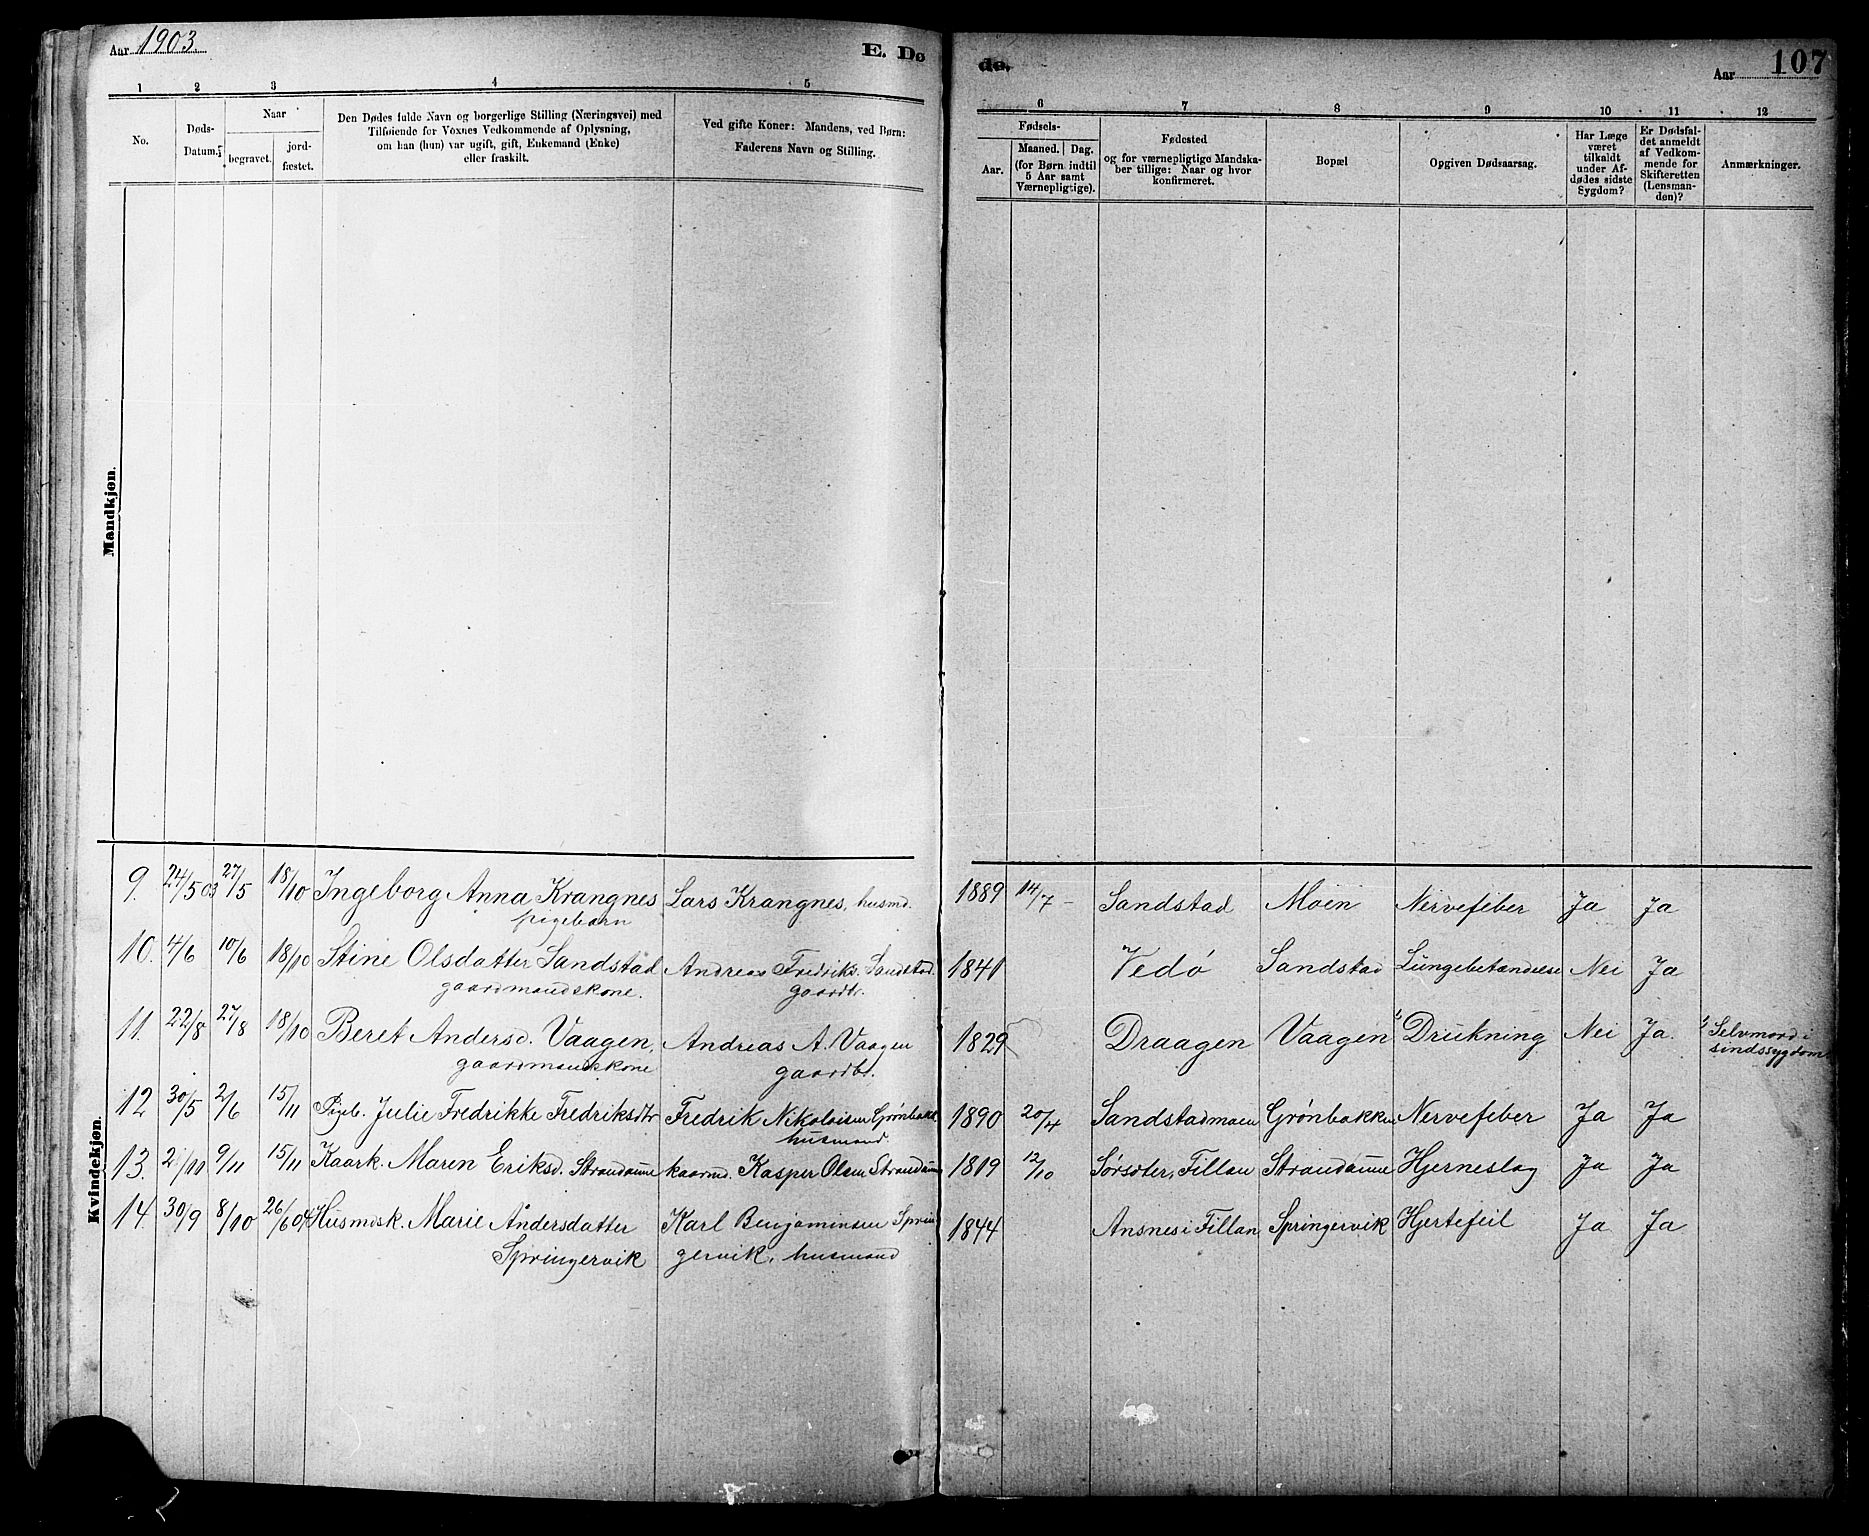 Aar 1903
E. Dø
de.
Aar
107
1 2 3 4 5
6 7 8 9 10 11 12
No.
Døds-
Datum.
Naar
begravet.
jord-
fæstet.
Den Dødes fulde Navn og borgerlige Stilling (Næringsvei) med
Tilføiende for Voxnes Vedkommende af Oplysning,
om han (hun) var ugift, gift, Enkemand (Enke)
eller fraskilt.
Ved gifte Koner: Mandens, ved Børn:
Faderens Navn og Stilling.
Fødsels-
Aar.
Maaned. Dag.
(for Børn indtil
5 Aar samt
Værnepligtige).
Fødested
og for værnepligtige Mandska-
ber tillige: Naar og hvor
konfirmeret.
Bopæl
Opgiven Dødsaarsag.
Har Læge
været
tilkaldt
under Af-
dødes sidste
Sygdom?
Er Dødsfal-
det anmeldt
af Vedkom-
mende for
Skifteretten
(Lensman-
den)?
Anmærkninger.
Mandkjøn.
Kvindekjøn.
9. 24/5 03 27/5 18/10 Ingeborg Anna Krangnes Lars Krangnes, husmd. 1889 14/7 – Sandstad Moen Nervefeber Ja Ja
pigebarn
10. 4/6 10/6 18/10 Stine Olsdatter Sandstad Andreas Fredriks. Sandstad. 1841 Vedø Sandstad Lungebetændelse Nei Ja
gaardmandskone. gaardbr.
11. 22/8 27/8 18/10 Beret Andersd. Vaagen, Andreas A. Vaagen 1829 Draagen Vaagen Drukning Nei Ja. Selvmord i
gaardmandskone gaardbr. sindssygdom
12 30/5 2/6 15/11 Pigeb. Julie Fredrikke Fredriksdtr Fredrik Nikolaisen Grønbakk. 1890 20/4 Sandstadmoen Grønbakken Nervefeber Ja Ja
husmand
13. 2/11 9/11 15/11 Kaark. Maren Eriksd. Strandaune kaarmd. Kasper Olsen Strandaune 1819 12/10 Sørsæter, Fillan Strandaune Hjerneslag Ja Ja
14. 30/9 8/10 26/6 04 Husmdsk. Marie Andersdatter Karl Benjaminsen Sprin 1844 Ansnes i Fillan Springervik Hjertefeil Ja Ja
Springervik gervik, husmand